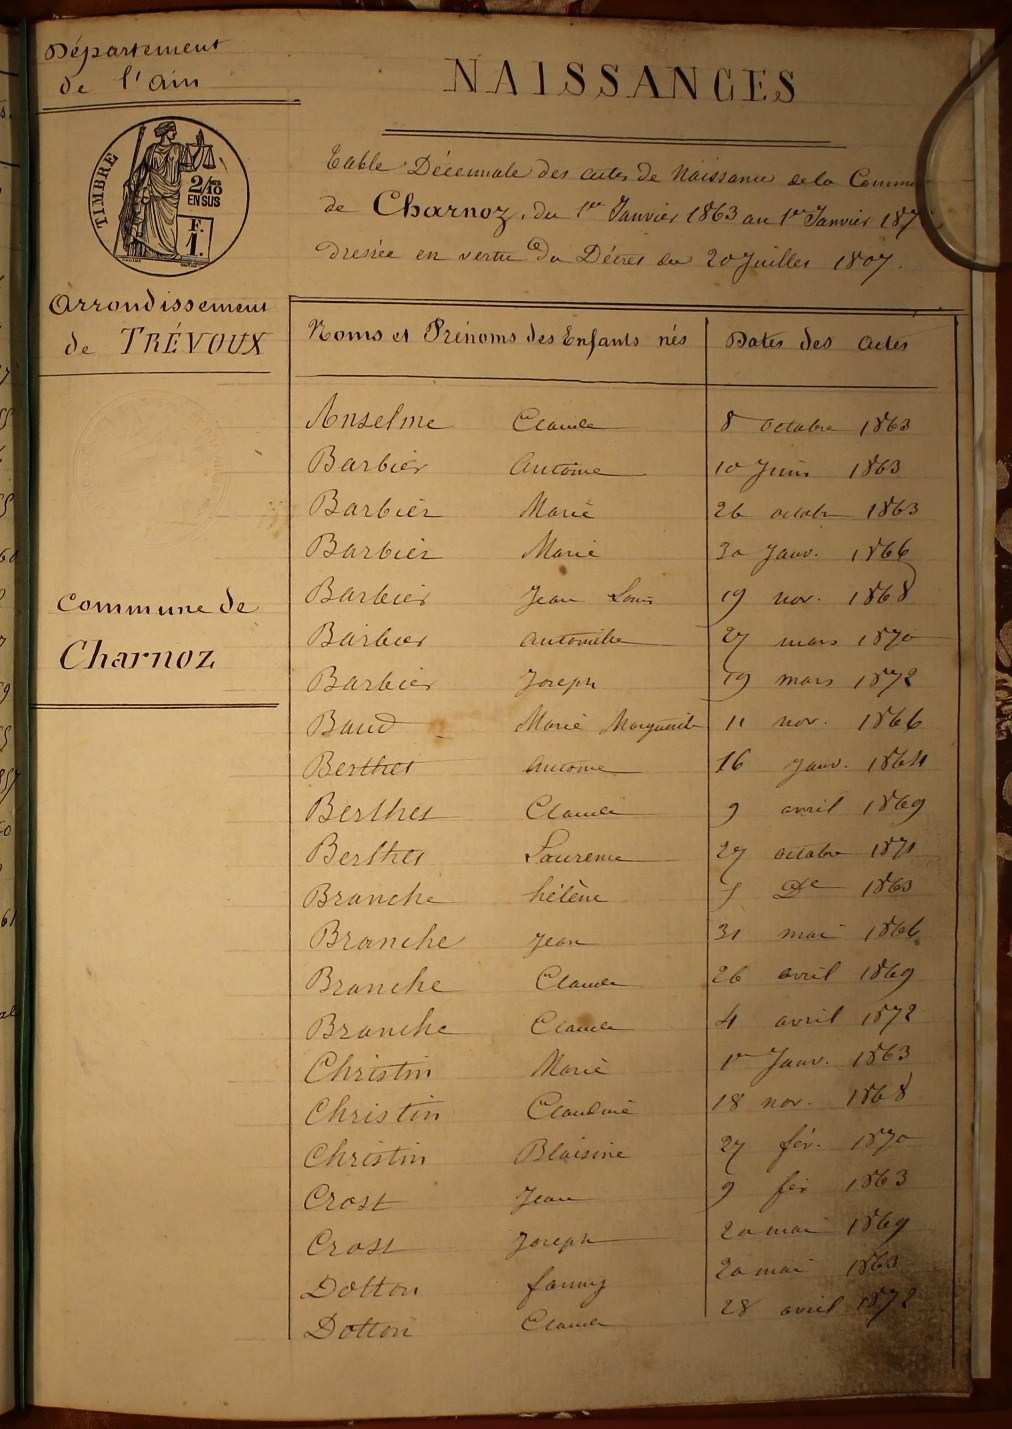 Département
de l'Ain
NAISSANCES
TIMBRE
2/10
EN SUS
F.
1.
Table Décennale des actes de Naissance de la Commune
de Charnoz, du 1er Janvier 1863 au 1er Janvier 187
dressée en vertu du Décret du 20 Juillet 1807.
Arrondissement
de TRÉVOUX
Commune de
Charnoz
Noms et Prénoms des Enfants nés Dates des Actes
Anselme Claude 8 octobre 1863
Barbier Antoine 10 Juin 1863
Barbier Marie 26 octobre 1863
Barbier Marie 30 Janv. 1866
Barbier Jean Louis 19 nov. 1868
Barbier Antoinette 27 mars 1870
Barbier Joseph 19 mars 1872
Baud Marie Marguerite 11 nov. 1866
Berthet Antoine 16 Janv. 1864
Berthet Claude 9 avril 1869
Berthet Laurence 27 octobre 1871
Branche hélène De 1863
Branche Jean 31 mai 1866
Branche Claude 26 avril 1869
Branche Claude 4 avril 1872
Christin Marie 1er Janv. 1863
Christin Claudine 18 nov. 1868
Christin Blaisine 27 fév. 1870
Crost Jean 9 fév 1863
Crost Joseph 20 mai 1869
Dotton fanny 20 mai 1863
Dotton Claude 28 avril 1872